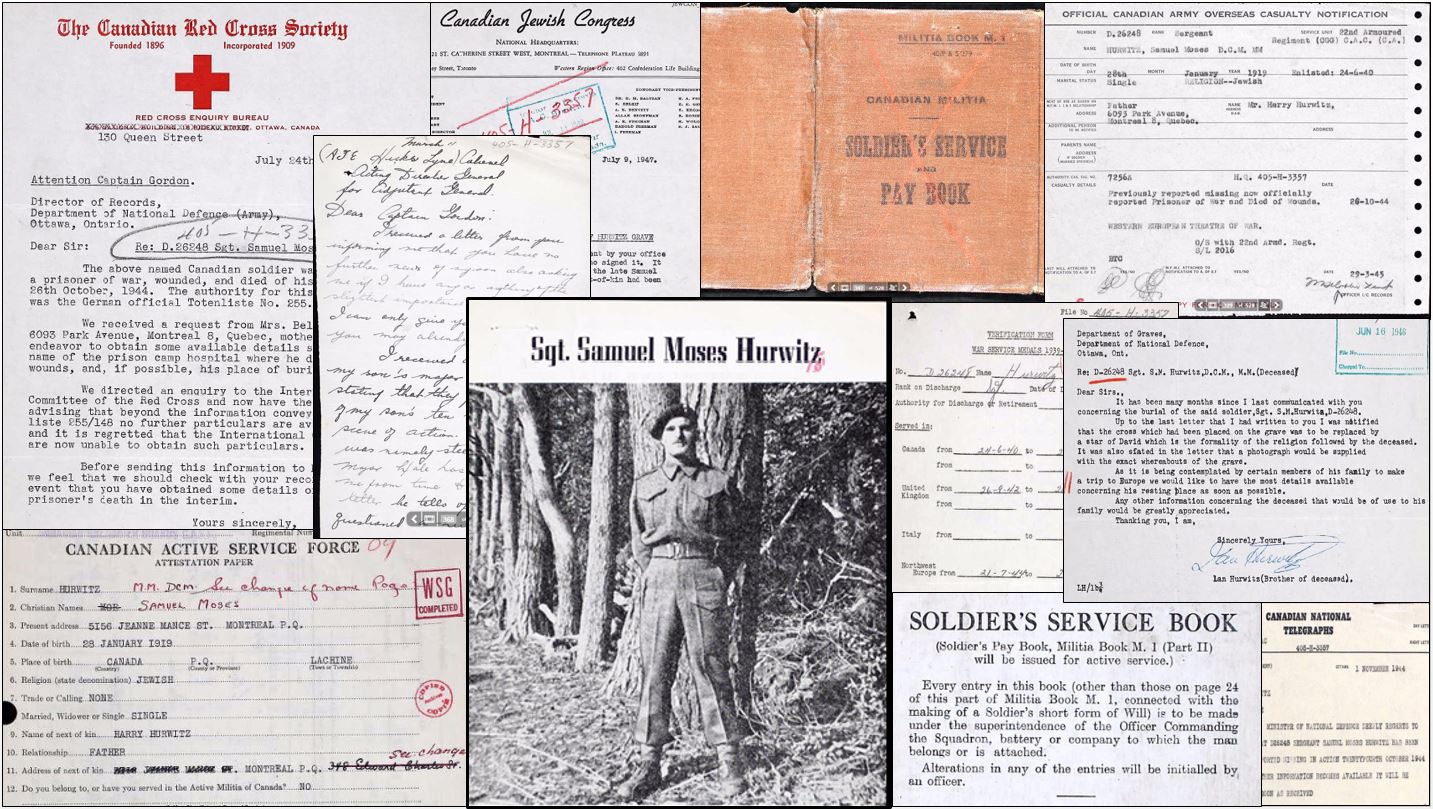 The Canadian Red Cross Society
Founded 1896 Incorporated 1909
RED CROSS ENQUIRY BUREAU
OTTAWA, CANADA
130 Queen Street
July 24th
Attention Captain Gordon.
Director of Records,
Department of National Defence (Army),
Ottawa, Ontario.
405-H-33
Dear Sir: Re: D.26248 Sgt. Samuel Mos
The above named Canadian soldier wa
a prisoner of war, wounded, and died of his
26th October, 1944. The authority for this
was the German official Totenliste No. 255.
We received a request from Mrs. Bel
6093 Park Avenue, Montreal 8, Quebec, mothe
endeavor to obtain some available details s
name of the prison camp hospital where he d
wounds, and, if possible, his place of buri
We directed an enquiry to the Inter
Committee of the Red Cross and now have the
advising that beyond the information convey
liste 255/148 no further particulars are av
and it is regretted that the International
are now unable to obtain such particulars.
Before sending this information to
we feel that we should check with your reco
event that you have obtained some details o
prisoner's death in the interim.
Yours sincerely,
Canadian Jewish Congress
NATIONAL HEADQUARTERS:
21 ST. CATHERINE STREET WEST, MONTREAL — TELEPHONE PLATEAU 5891
ey Street, Toronto Western Region Office: 402 Confederation Life Building
HONORARY VICE-PRESIDENT
405-H-3357
July 9, 1947.
HURWITZ GRAVE
ent by your office
ho signed it. It
the late Samuel
-of-kin had been
March 11
405-H-3357
Colonel
Acting Director General
for Adjutant General.
Dear Captain Gordon:
I received a letter from you
informing me that you have no
further news of my son also asking
I can only give yo
you may alread
I received a
my son's major
stating that they
of my son's
scene of action.
letter he tells o
questioned
MILITIA BOOK M. 1
CANADIAN MILITIA
SOLDIER'S SERVICE
AND
PAY BOOK
OFFICIAL CANADIAN ARMY OVERSEAS CASUALTY NOTIFICATION
NUMBER D.26248 RANK Sergeant SERVICE UNIT 22nd Armoured
Regiment (CGG) C.A.C. (C.A.)
NAME HURWITZ, Samuel Moses D.C.M. MM
DATE OF BIRTH
DAY 28th MONTH January YEAR 1919 Enlisted: 24-6-40
MARITAL STATUS Single RELIGION--Jewish
Father NAME Mr. Harry Hurwitz,
6093 Park Avenue,
Montreal 8, Quebec.
ADDRESS
PARENTS NAME
ADDRESS
7256A H.Q. 405-H-3357
CASUALTY DETAILS DATE
Previously reported missing now officially
reported Prisoner of War and Died of Wounds. 26-10-44
WESTERN EUROPEAN THEATRE OF WAR.
O/S with 22nd Armd. Regt.
S/L 2016
HTC
DATE 29-3-45
OFFICER I/C RECORDS
Sgt. Samuel Moses Hurwitz
File No 405-H-3357
VERIFICATION FORM
WAR SERVICE MEDALS 1939-
No. D 26248 Name Hurwitz
Rank on Discharge Sgt Date of
Authority for Discharge or Retirement
Served in:
Canada from 24-6-40 to
from to
United Kingdom from 26-9-42 to
from to
Italy from to
Northwest Europe from 21-7-44 to
Department of Graves,
Department of National Defence,
Ottawa, Ont.
JUN 16 1948
File No.
Charged To
Re: D-26248 Sgt. S.M. Hurwitz,D.C.M., M.M.(Deceased)
Dear Sirs.,
It has been many months since I last communicated with you
concerning the burial of the said soldier,Sgt. S.M.Hurwitz,D-26248.
Up to the last letter that I had written to you I was notified
that the cross which had been placed on the grave was to be replaced by
a star of David which is the formality of the religion followed by the deceased.
It was also stated in the letter that a photograph would be supplied
with the exact whereabouts of the grave.
As it is being contemplated by certain members of his family to make
a trip to Europe we would like to have the most details available
concerning his resting place as soon as possible.
Any other information concerning the deceased that would be of use to his
family would be greatly appreciated.
Thanking you, I am,
Sincerely Yours,
Ian Hurwitz(Brother of deceased).
CANADIAN ACTIVE SERVICE FORCE
ATTESTATION PAPER
WSG
COMPLETED
1. Surname HURWITZ M.M. DCM. See change of name Page
2. Christian Names MOE SAMUEL MOSES
3. Present address 5156 JEANNE MANCE ST. MONTREAL P.Q.
4. Date of birth 28 JANUARY 1919
5. Place of birth CANADA P.Q. LACHINE
(Country) (County or Province) (Town or Township)
6. Religion (state denomination) JEWISH
7. Trade or Calling NONE
8. Married, Widower or Single SINGLE
9. Name of next of kin HARRY HURWITZ
10. Relationship FATHER
See change
11. Address of next of kin MONTREAL P.Q. 348 Edward Charles St.
12. Do you belong to, or have you served in the Active Militia of Canada? NO
COPIED
SOLDIER'S SERVICE BOOK
(Soldier's Pay Book, Militia Book M. 1 (Part II)
will be issued for active service.)
Every entry in this book (other than those on page 24
of this part of Militia Book M. 1, connected with the
making of a Soldier's short form of Will) is to be made
under the superintendence of the Officer Commanding
the Squadron, battery or company to which the man
belongs or is attached.
Alterations in any of the entries will be initialled by
an officer.
CANADIAN NATIONAL
TELEGRAPHS
405-H-3357
1 NOVEMBER 1944
MINISTER OF NATIONAL DEFENCE DEEPLY REGRETS TO
D26248 SERGEANT SAMUEL MOSES HURWITZ HAS BEEN
ORTED MISSING IN ACTION TWENTYFOURTH OCTOBER 1944
HER INFORMATION BECOMES AVAILABLE IT WILL BE
OON AS RECEIVED